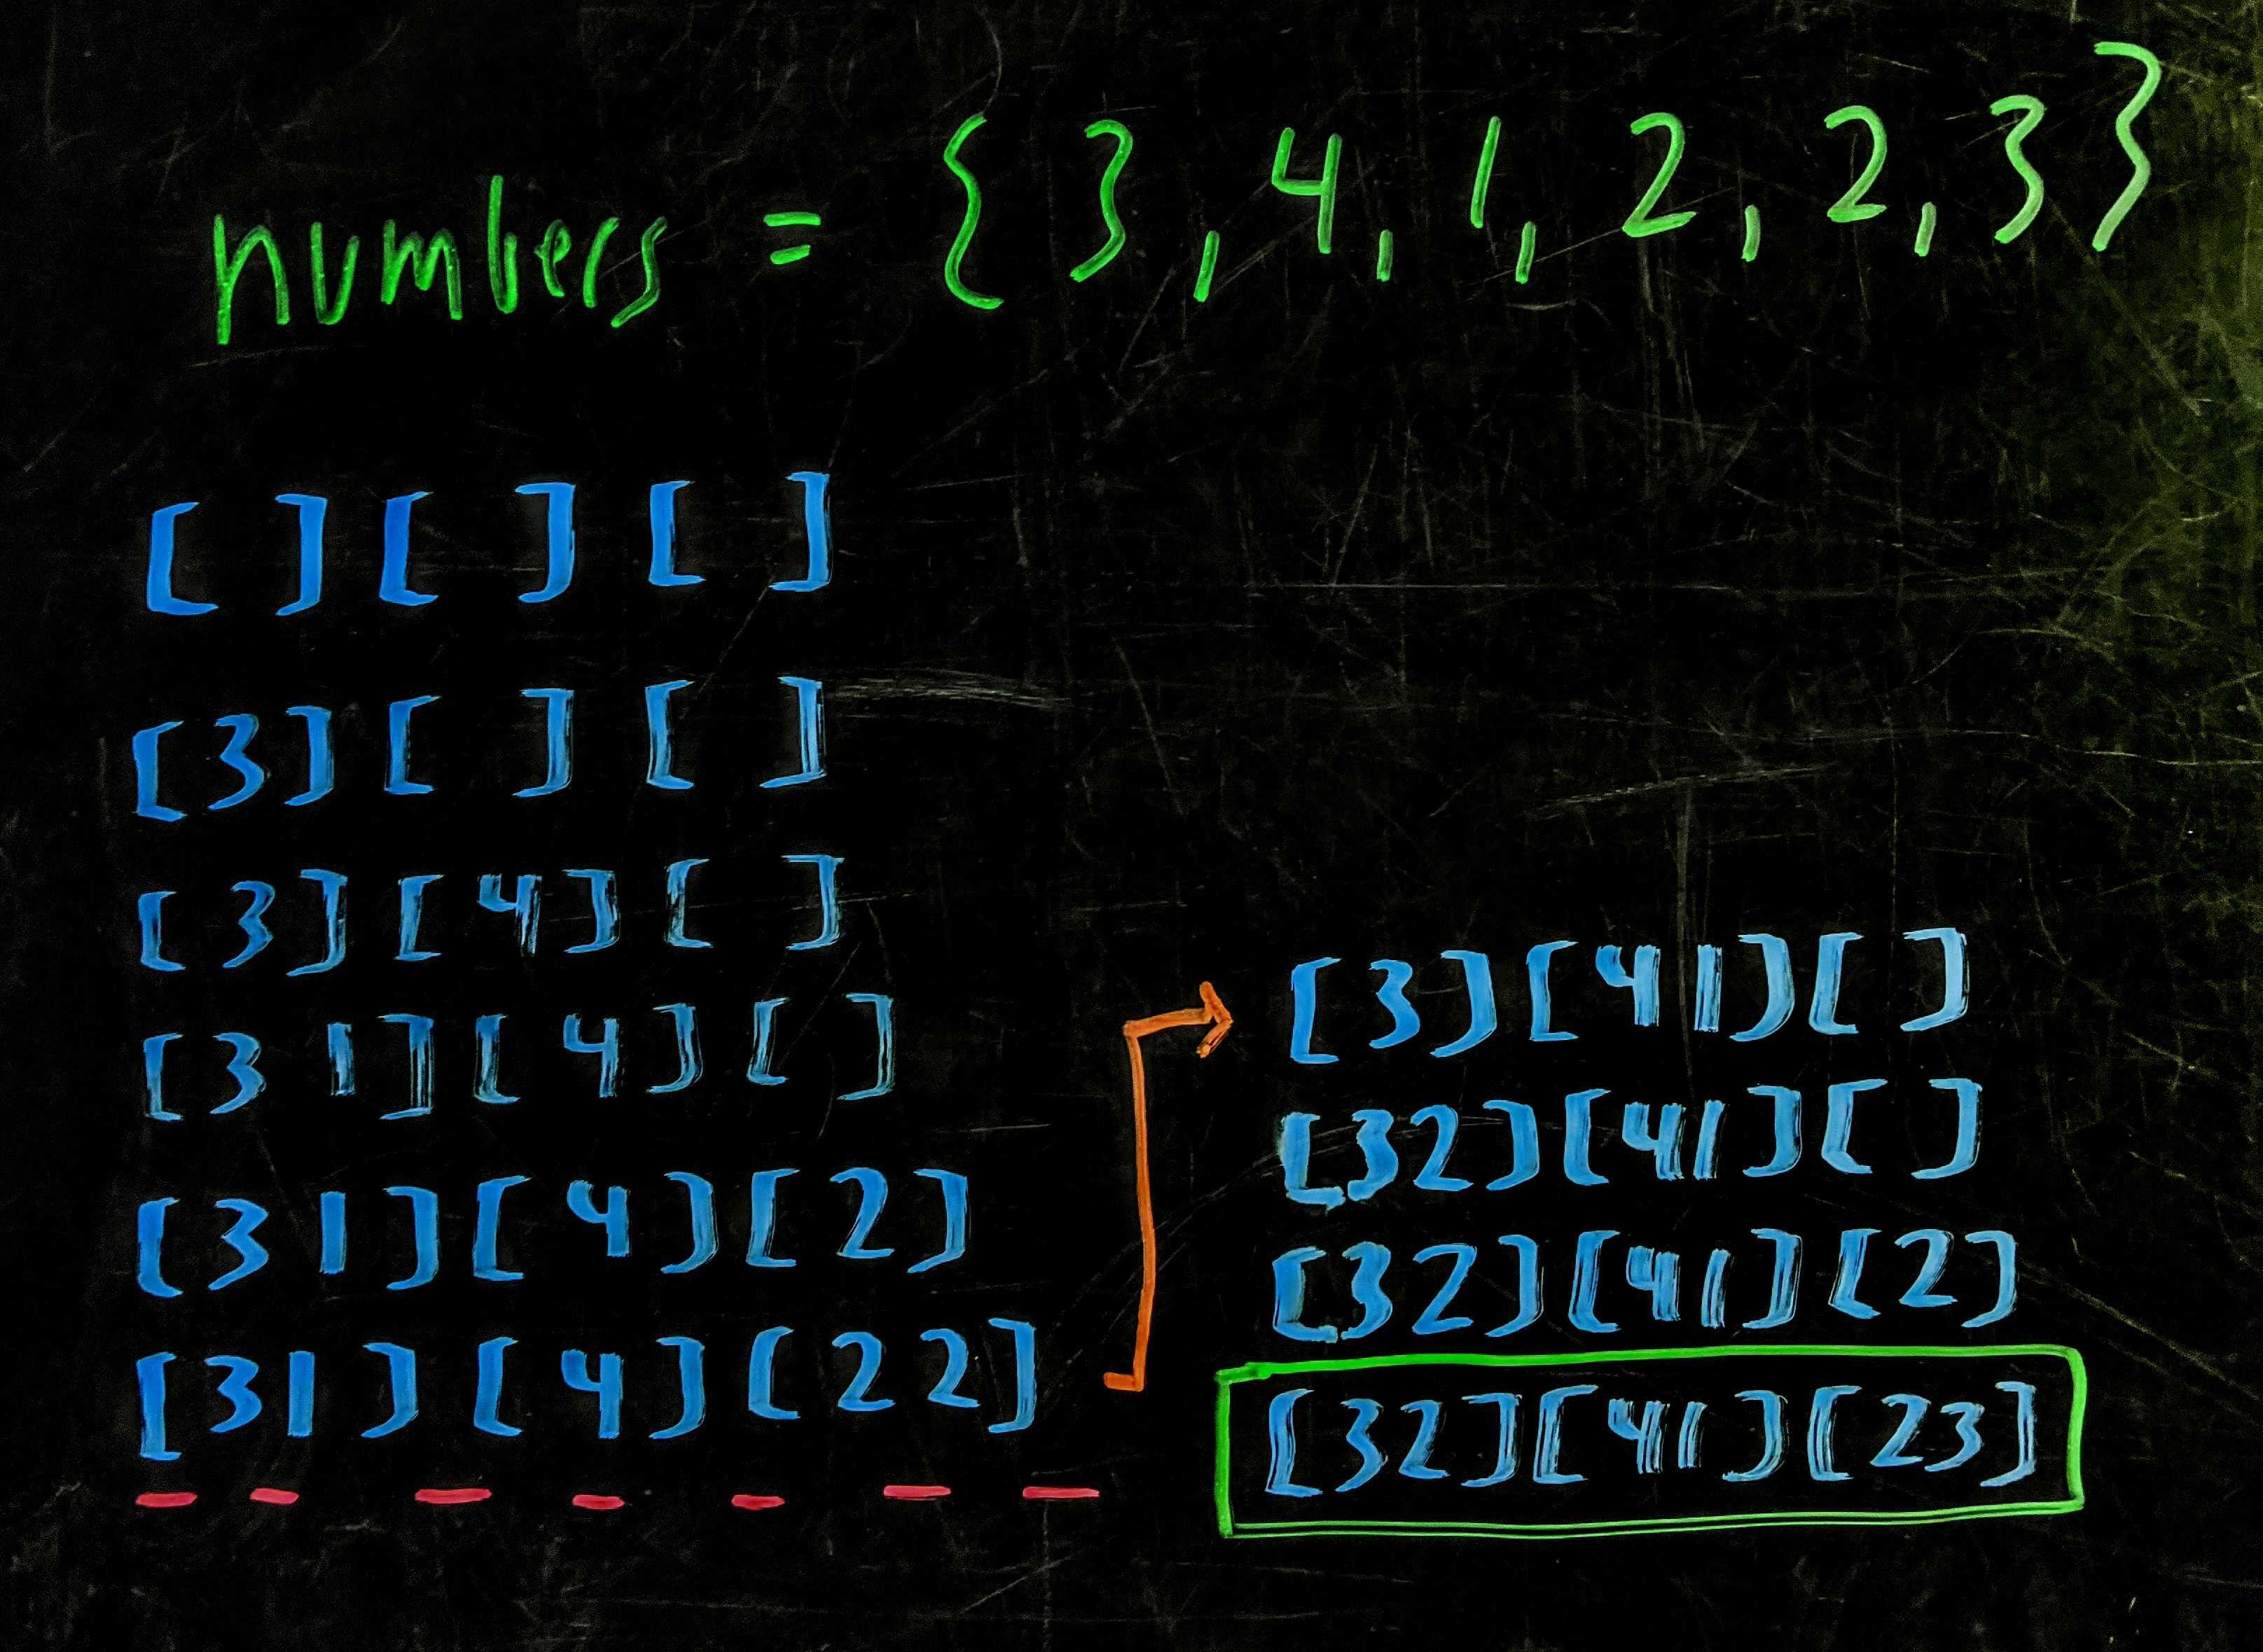 numbers = { 3, 4, 1, 2, 2, 3 }
[ ] [ ] [ ]
[3] [ ] [ ]
[3] [4] [ ]
[3 1] [4] [ ]
[3 1] [4] [2]
[31] [4] [22]
[3] [41] [ ]
[32] [41] [ ]
[32] [41] [2]
[32] [41] [23]